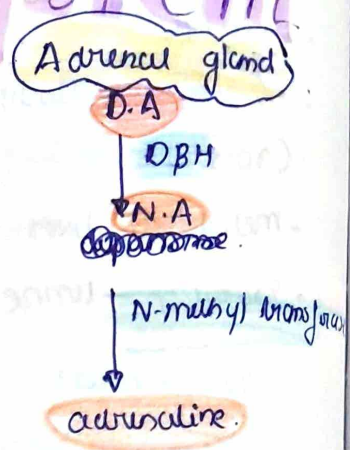 Adrenal gland
D.A
DβH
N.A
N-methyl transferas
adrenaline.